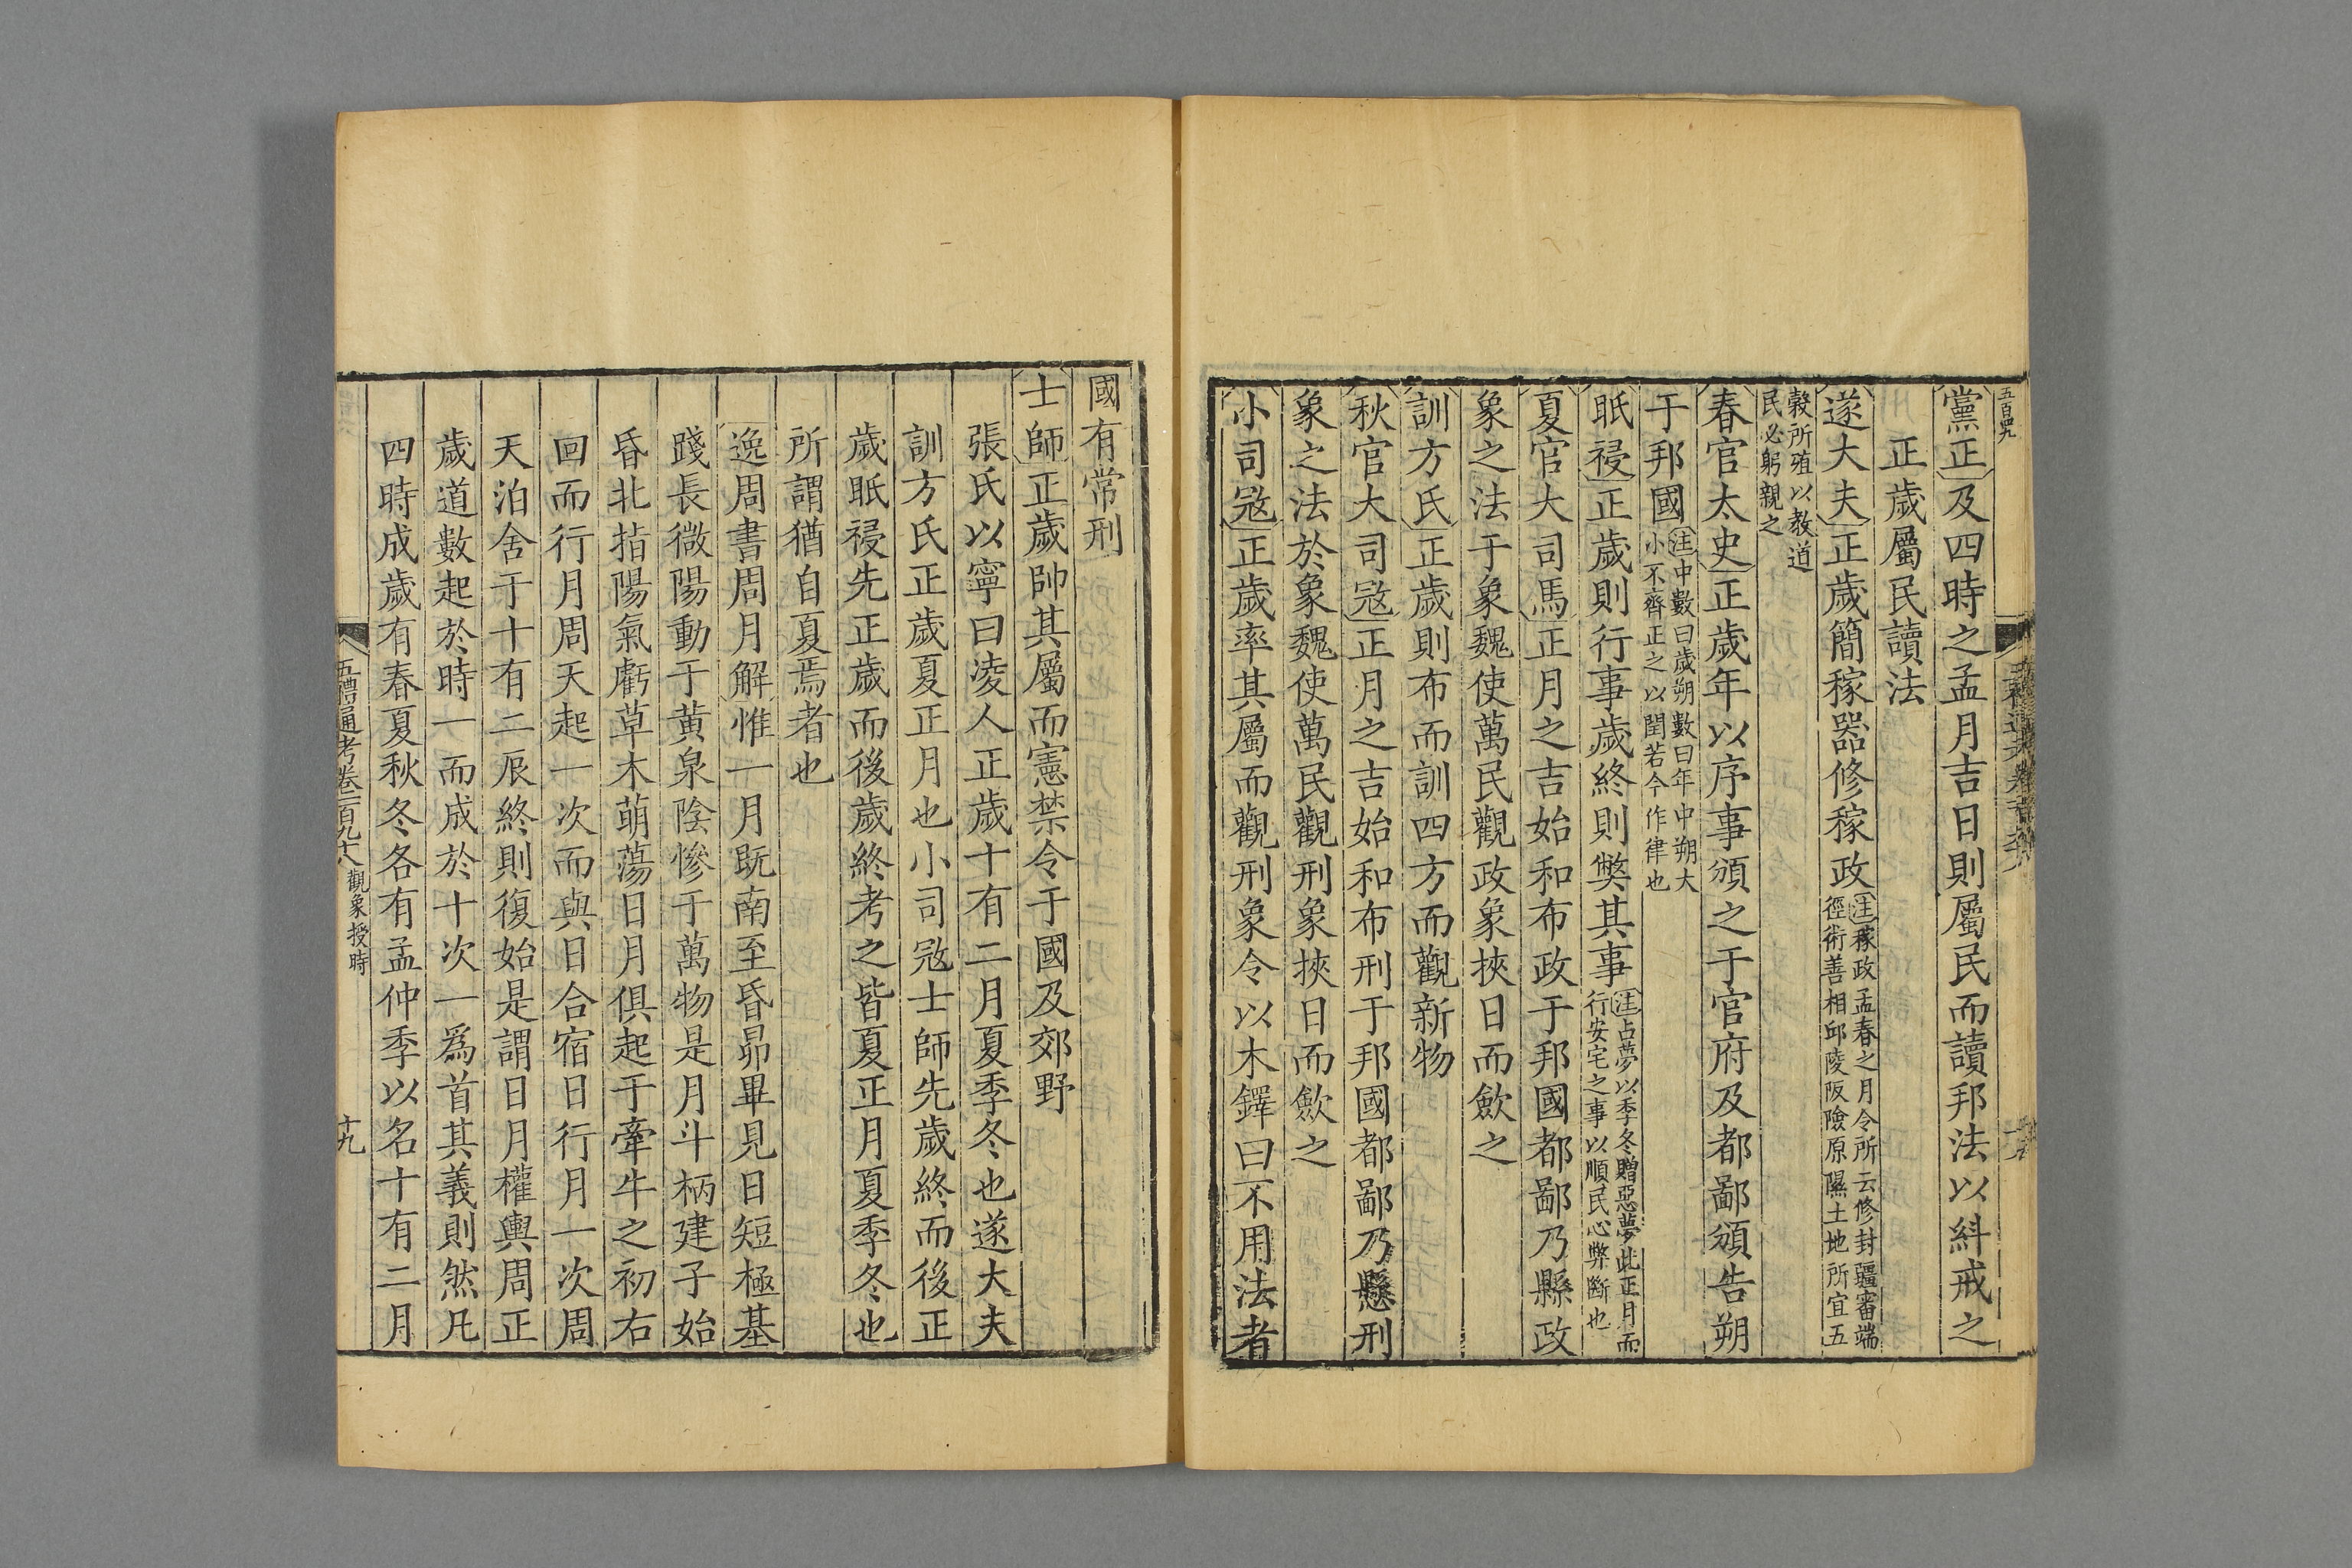 五百四九
黨正及四時之孟月吉日則屬民而讀邦法以糾戒之
正歲屬民讀法
遂大夫正歲簡稼器修稼政注稼政孟春之月令所云修封疆審端
徑術善相邱陵阪險原隰土地所宜五
穀所殖以教道
民必躬親之
春官太史正歲年以序事頒之于官府及都鄙頒告朔
于邦國注中數曰歲朔數曰年中朔大
小不齊正之以閏若今作律也
眡祲正歲則行事歲終則獘其事注占夢以季冬贈惡夢此正月而
行安宅之事以順民心弊斷也
夏官大司馬正月之吉始和布政于邦國都鄙乃縣政
象之法于象魏使萬民觀政象挾日而歛之
訓方氏正歲則布而訓四方而觀新物
秋官大司宼正月之吉始和布刑于邦國都鄙乃懸刑
象之法於象魏使萬民觀刑象挾日而歛之
小司宼正歲率其屬而觀刑象令以木鐸曰不用法者
國有常刑
士師正歲帥其屬而憲禁令于國及郊野
張氏以寧曰凌人正歲十有二月夏季冬也遂大夫
訓方氏正歲夏正月也小司宼士師先歲終而後正
歲眡祲先正歲而後歲終考之皆夏正月夏季冬也
所謂猶自夏焉者也
逸周書周月解惟一月旣南至昏昴畢見日短極基
踐長微陽動于黃泉陰慘于萬物是月斗柄建子始
昏北指陽氣虧草木萌蕩日月俱起于牽牛之初右
回而行月周天起一次而與日合宿日行月一次周
天泊舍于十有二辰終則復始是謂日月權輿周正
歲道數起於時一而成於十次一爲首其義則然凡
四時成歲有春夏秋冬各有孟仲季以名十有二月
五禮通考卷二百九十八 觀象授時 十九